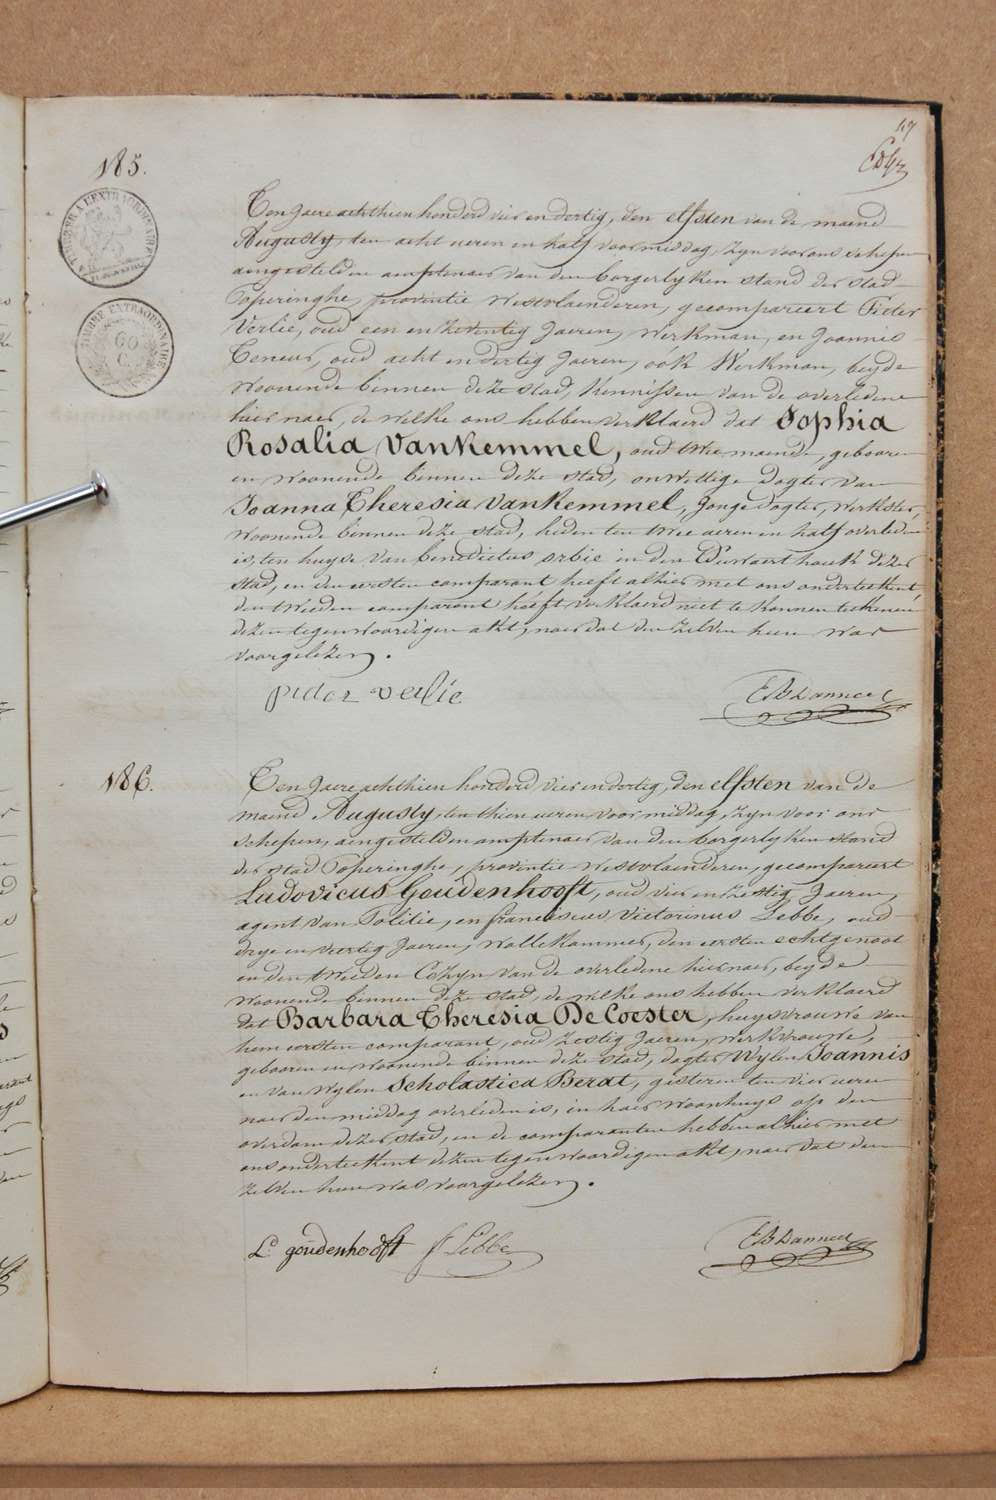 47
185.
TIMBRE A L'EXTRAORDINAIRE
TIMBRE EXTRAORDINAIRE
60
C.
Ten Jaere achthien honderd vier en dertig, den elfsten van de maend
Augusty, ten acht ueren en half voormiddag, zyn voor ons schepen
aengestelden amptenaer van den borgerlyken stand der stad
Poperinghe, provintie Westvlaenderen, gecompareert Pieter
Verlie, oud een en zeventig Jaeren, werkman, en Joannis
oud acht en dertig Jaeren, ook Werkman, beyde
woonende binnen deze stad, kennissen van de overledene
hier naer, de welke ons hebben verklaerd dat Sophia
Rosalia VanKemmel, oud twee maende, gebooren
en woonende binnen deze stad, onwettige dogter van
Joanna Theresia VanKemmel, Jonge dogter, werkster,
woonende binnen deze stad, heden ten twee ueren en half overleden
is, ten huyse van benedictus orbie in den houck dezer
stad, en den eersten comparant heeft alhier met ons onderteekent
den tweeden comparant heeft verklaerd niet te konnen teekenen
dezen tegenwoordigen akt, naer dat den zelven hun was
voorgelezen.
pieter verlie
186.
Ten Jaere achthien honderd vier en dertig, den elfsten van de
maend Augusty, ten thien ueren voormiddag, zyn voor ons
schepen, aengestelden amptenaer van den borgerlyken stand
der stad Poperinghe, provintie Westvlaenderen, gecompareert
Ludovicus Goudenhooft, oud vier en zestig Jaeren,
agent van Politie, en franciscus Victorinus Lebbe, oud
drye en veertig Jaeren, wollekammer, den eersten echtgenoot
en den tweeden Cozyn van de overledene hier naer, beyde
woonende binnen deze stad, de welke ons hebben verklaerd
dat Barbara Theresia De Coester, huysvrouwe van
hem eersten comparant, oud zestig Jaeren, werkvrouwe,
gebooren en woonende binnen deze stad, dogter Wylen Joannis
en van Wylen Scholastica Berat, gisteren ten vier ueren
naer den middag overleden is, in haer woonhuys op den
overdam dezer stad, en de comparanten hebben alhier met
ons onderteekent dezen tegenwoordigen akt, naer dat den
zelven hun was voorgelezen.
L. goudenhooft f Lebbe